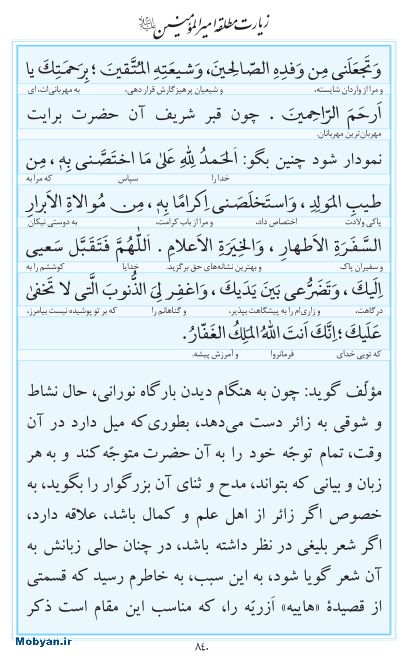 زیارت مطلقه امیرالمؤمنین علیه‌السلام
وَتَجعَلَنی مِن وَفدِهِ الصّالِحینَ، وَشیعَتِهِ المُتَّقینَ ؛ بِرَحمَتِكَ یا
و مرا از واردان شایسته، و شیعیان پرهیزگارش قرار دهی، به مهربانی‌ات، ای
اَرحَمَ الرّاحِمینَ . چون قبر شریف آن حضرت برایت
مهربان‌ترین مهربانان.
نمودار شود چنین بگو: اَلحَمدُ لِلّٰهِ عَلیٰ مَا اختَصَّنی بِهٖ، مِن
سپاس خدا را که مرا به
طیبِ المَولِدِ، وَاستَخلَصَنی اِکرامًا بِهٖ، مِن مُوالاةِ الاَبرارِ
پاکی ولادت اختصاص داد، و مرا از باب کرامت، به دوستی نیکان
السَّفَرَةِ الاَطهارِ ، وَالخِیَرَةِ الاَعلامِ . اَللّٰهُمَّ فَتَقَبَّل سَعیی
و سفیران پاک و بهترین نشانه‌های حق برگزید. خدایا کوششم را به
اِلَیكَ ، وَتَضَرُّعی بَینَ یَدَیكَ ، وَاغفِر لِیَ الذُّنوبَ الَّتی لا تَخفیٰ
درگاهت، و زاری‌ام را به پیشگاهت بپذیر، و گناهانم را که بر تو پوشیده نیست بیامرز،
عَلَیكَ ؛ اِنَّكَ اَنتَ اللّٰهُ المَلِكُ الغَفّارُ.
که تویی خدای فرمانروا و آمرزش پیشه.
مؤلّف گوید: چون به هنگام دیدن بارگاه نورانی، حال نشاط
و شوقی به زائر دست می‌دهد، بطوری‌که میل دارد در آن
وقت، تمام توجّه خود را به آن حضرت متوجّه کند و به هر
زبان و بیانی که بتواند، مدح و ثنای آن بزرگوار را بگوید، به
خصوص اگر زائر از اهل علم و کمال باشد، علاقه دارد،
اگر شعر بلیغی در نظر داشته باشد، در چنان حالی زبانش به
آن شعر گویا شود، به این سبب، به خاطرم رسید که قسمتی
از قصیدهٔ «هاییه» اَزریّه را، که مناسب این مقام است ذکر
Mobyan.ir
۸۴۰